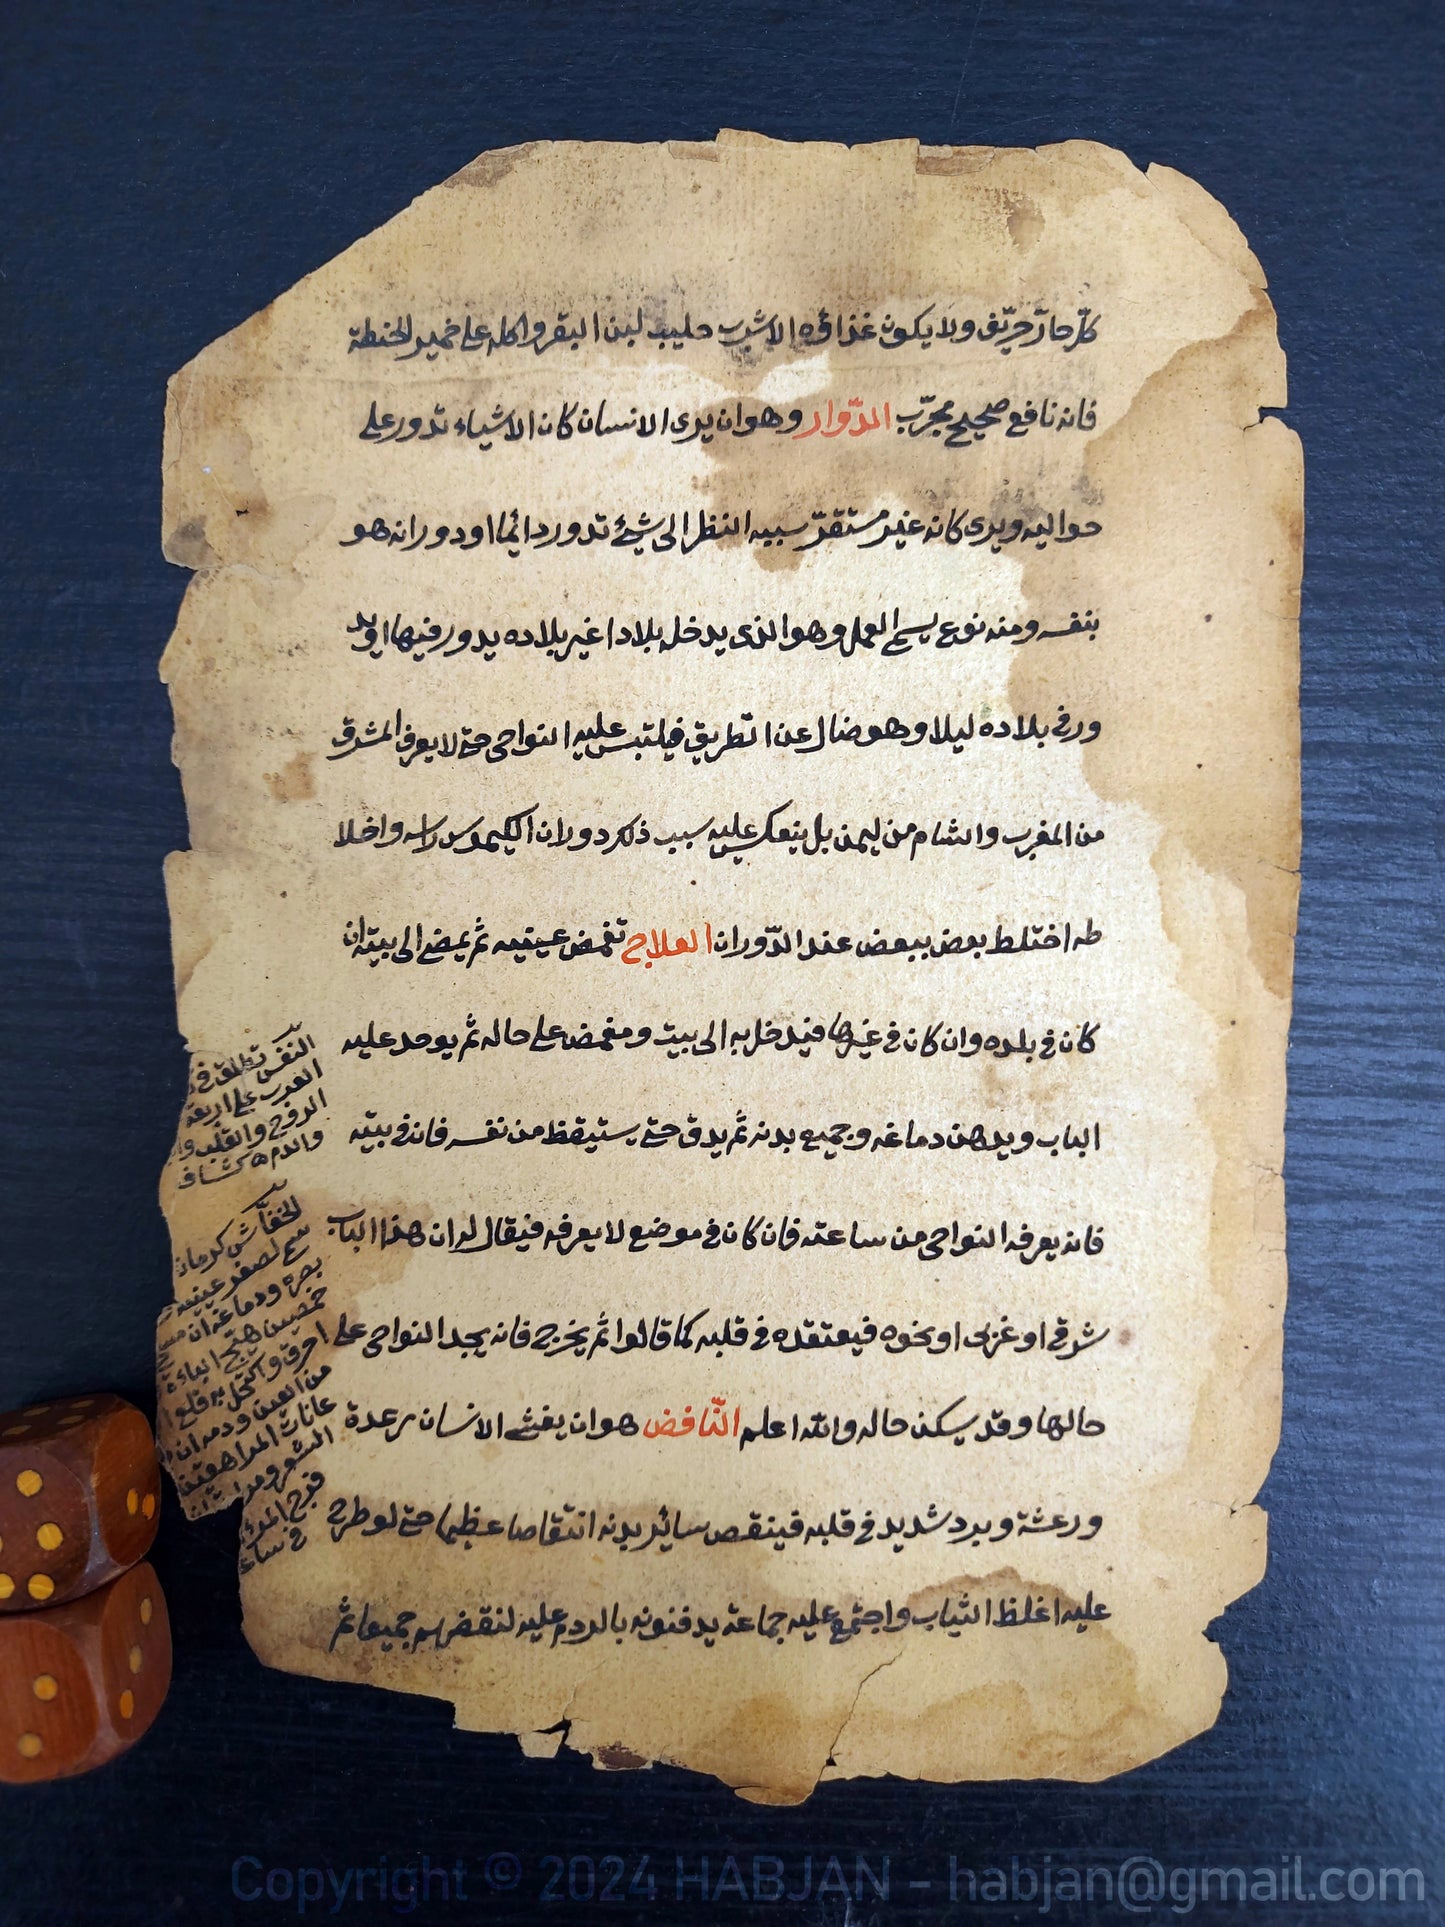 كلّ حارّ حرّيف ولا يكون غذاؤه الا شرب حليب لبن البقر واكله على خمير الحنطة
فانه نافع صحيح مجرّب الدّوار وهو ان يرى الانسان كان الاشياء تدور على
حواليه ويرى كانه غير مستقرّ سببه النظر الى شئ تدور دائما او دورانه هو
بنفسه ومنه نوع يسمى العمل وهو الذى يدخل بلادا غير بلاده يدور فيها او يد
ور فى بلاده ليلا وهو ضال عن الطريق فيلتبس عليه النواحى حتى لا يعرف المشرق
من المغرب والشام من ليمن بل ينعكس عليه سبب ذلك دوران الكيموس راسه واخلا
طه اختلط بعض ببعض عند الدّوران العلاج تغمض عينيه ثم يمضى الى بيته ان
كان فى بلده وان كان فى غيرها فيدخل به الى بيت ومغمض على حاله ثم يوصد عليه
الباب ويدهن دماغه وجميع بدنه ثم يدق حتى يستيقظ من نفسه فانه فى بيته
فانه يعرفه النواحى من ساعته فان كان فى موضع لا يعرفه فيقال له ان هذا الباب
شرقى او غربى او نحوه فيعتقده فى قلبه كما قالوا ثم يخرج فانه يجد النواحى على
حالها وقد يسكن حاله والله اعلم النّافض هو ان يغشى الانسان رعدة
ورعشة وبرد شديد فى قلبه فينقص سائر بدنه انتقاصا عظيما حتى لو طرح
عليه اغلظ الثياب واجتمع عليه جماعة يدفنونه بالردم عليه لنقضهم جميعا ثم
النفس تطلق فى
العرب على اربعة
الروح والقلب وا
والدم كشاف
الخفّاش كرمان
سمى لصغر عينيه
بصره ودماغه ان
احرق واكتحل به قلع
من العين ودمه ان
عانات المراهقين
الشعر
فرج المرءة
Copyright © 2024 HABJAN - habjan@gmail.com